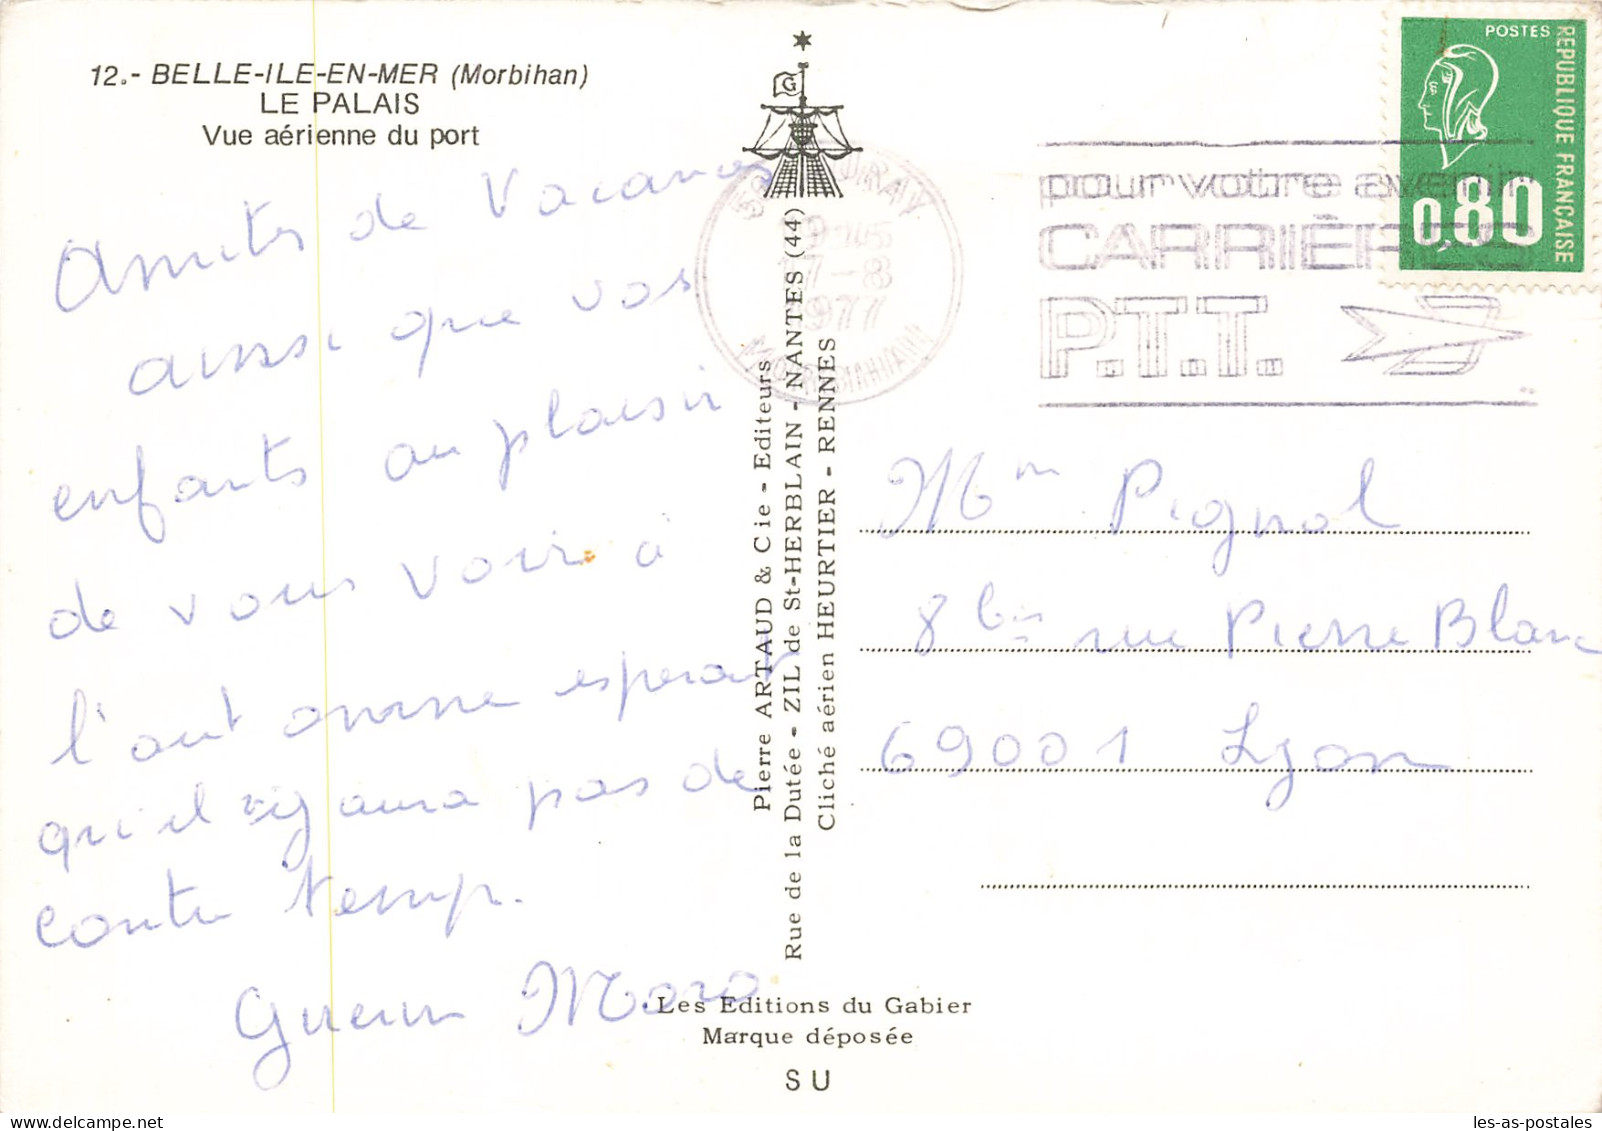 12.- BELLE-ILE-EN-MER (Morbihan)
LE PALAIS
Vue aérienne du port
Amités de Vacances
ainsi que vos
enfants au plaisir
de vous voir à
l'automne esperant
qu'il n'y aura pas de
contre temp.
Guerin Moro
G
Pierre ARTAUD & Cie - Editeurs
Rue de la Dutée - ZIL de St-HERBLAIN - NANTES (44)
Cliché aérien HEURTIER - RENNES
Les Editions du Gabier
Marque déposée
SU
AURAY
17-8
1977
MORBIHAN
pour votre avenir
CARRIÈRES
P.T.T.
POSTES
REPUBLIQUE FRANÇAISE
0,80
Mme Pignol
8 bis rue Pierre Blanc
69001 Lyon
les-as-postales